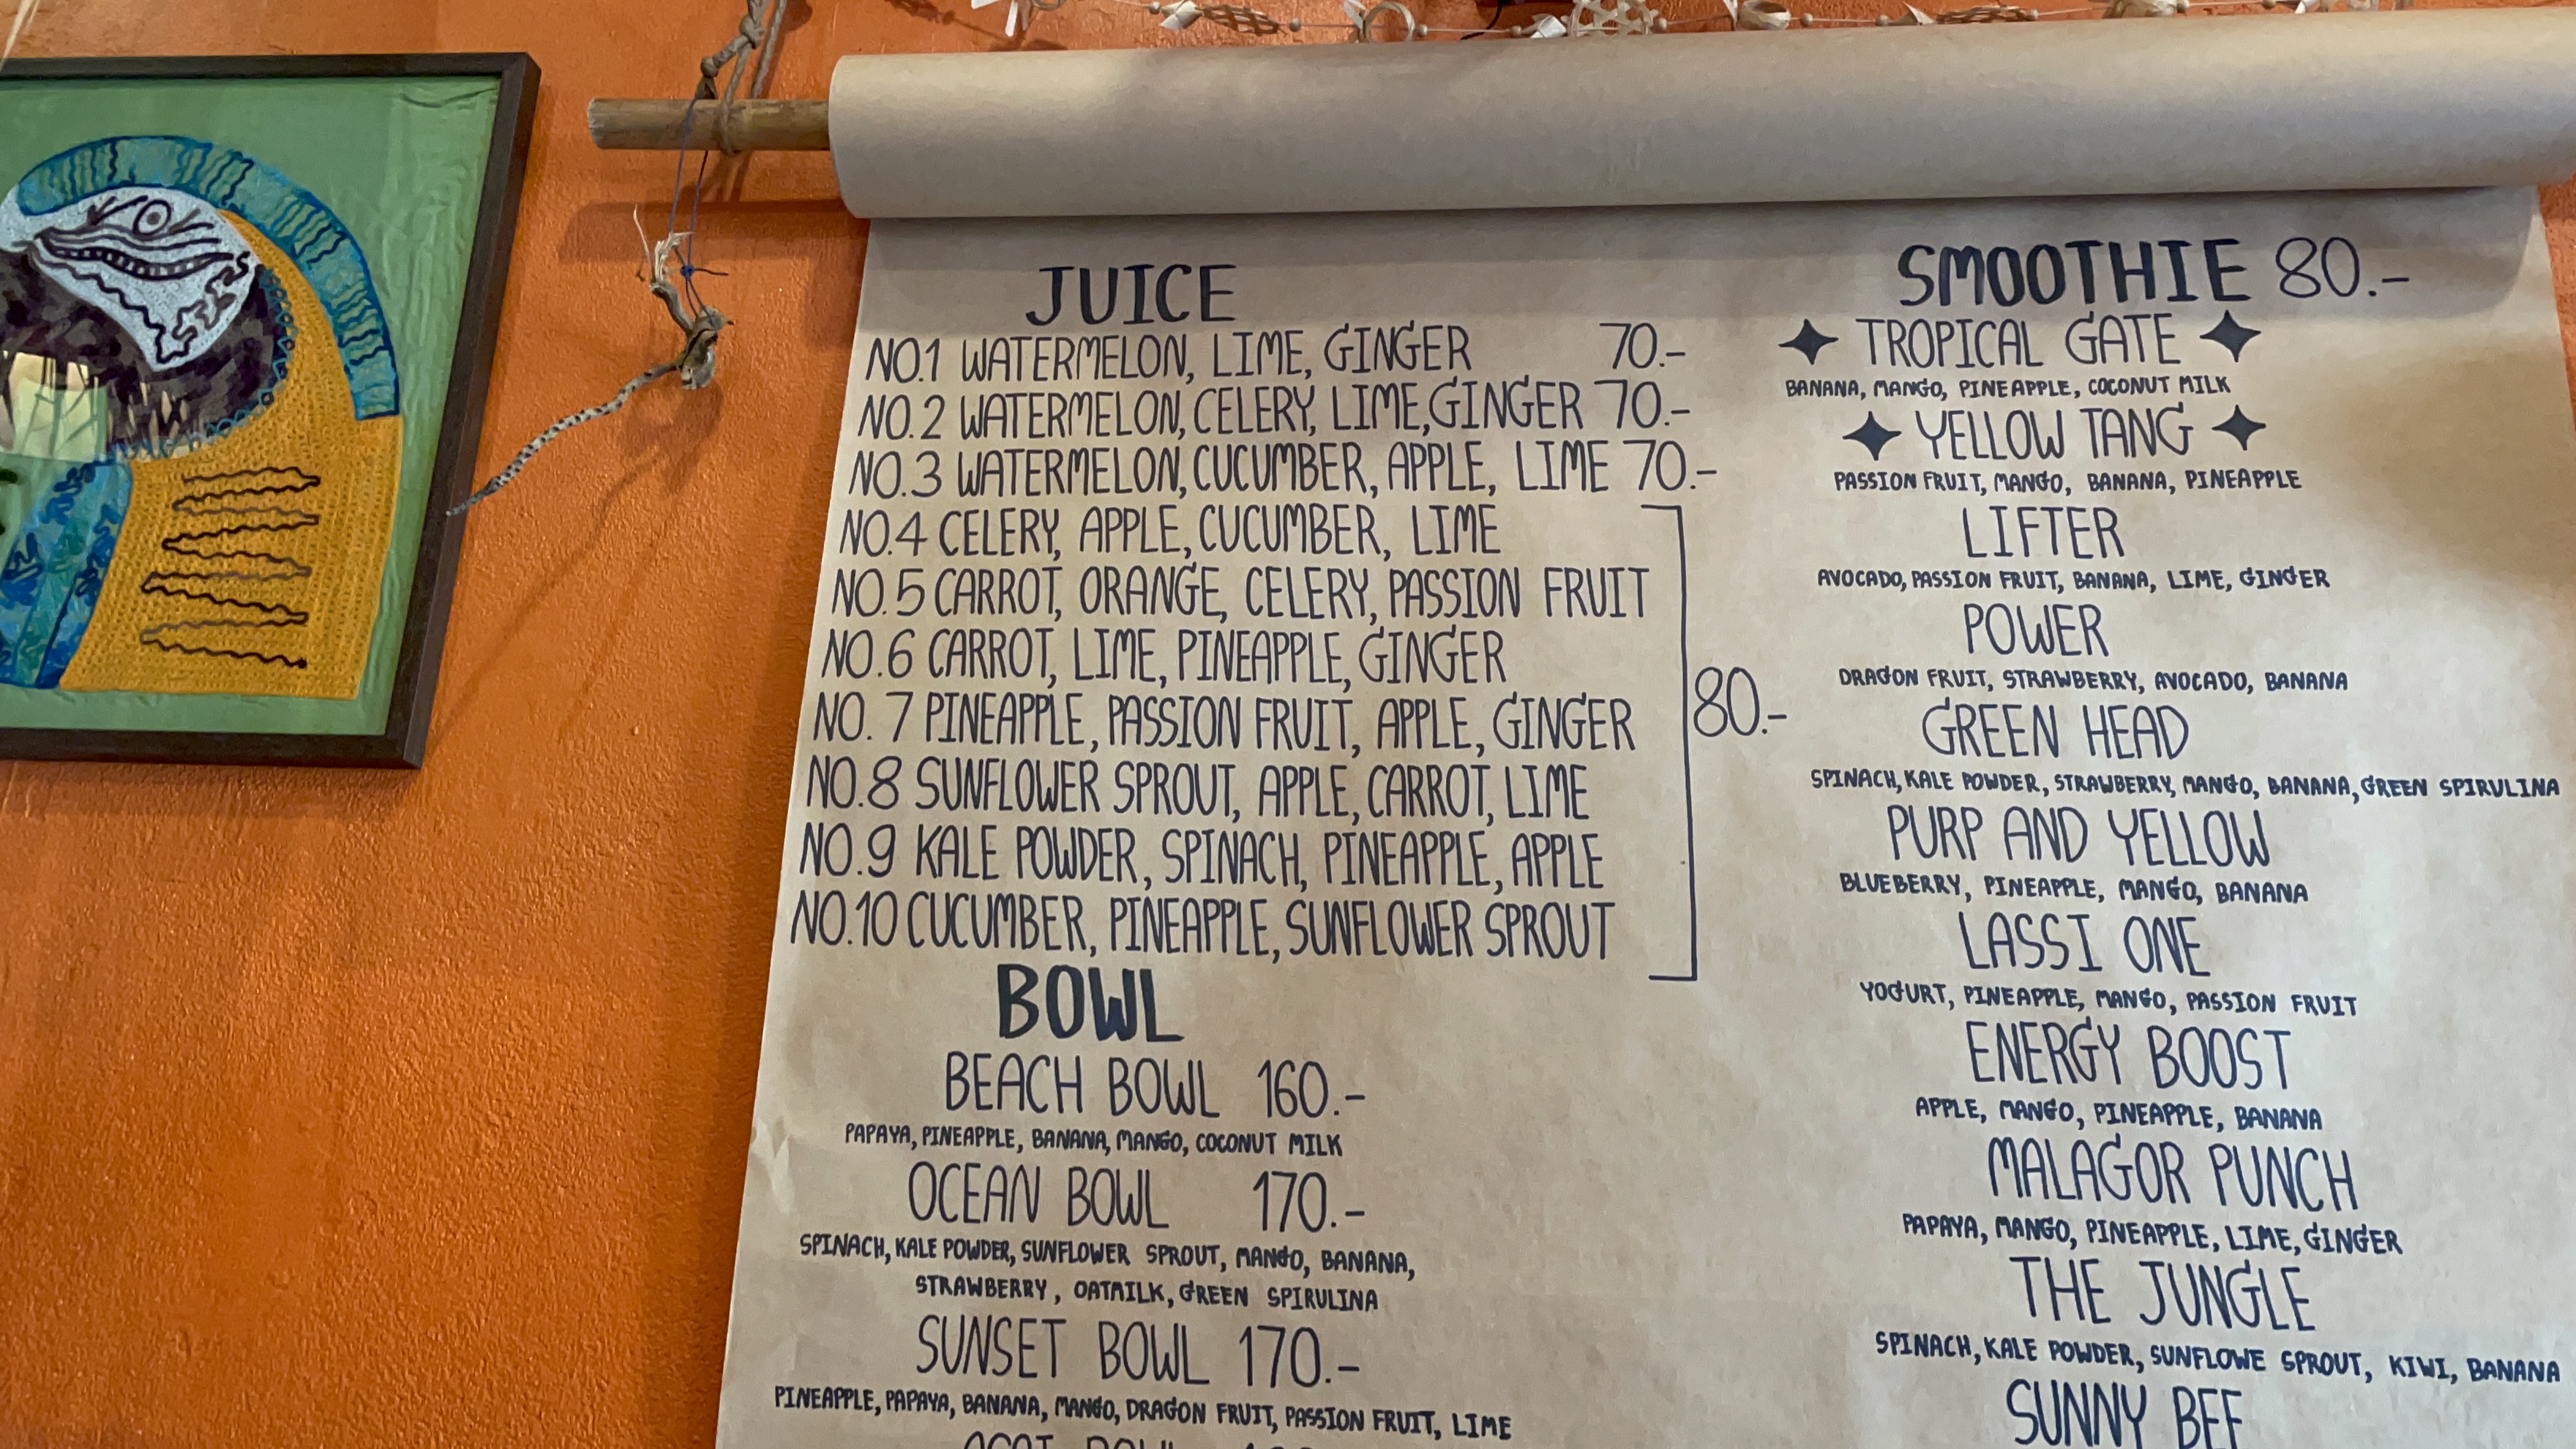 JUICE
NO.1 WATERMELON, LIME, GINGER 70.-
NO.2 WATERMELON, CELERY, LIME, GINGER 70.-
NO.3 WATERMELON, CUCUMBER, APPLE, LIME 70.-
NO.4 CELERY, APPLE, CUCUMBER, LIME
NO.5 CARROT, ORANGE, CELERY, PASSION FRUIT
NO.6 CARROT, LIME, PINEAPPLE, GINGER
NO.7 PINEAPPLE, PASSION FRUIT, APPLE, GINGER
80.-
NO.8 SUNFLOWER SPROUT, APPLE, CARROT, LIME
NO.9 KALE POWDER, SPINACH, PINEAPPLE, APPLE
NO.10 CUCUMBER, PINEAPPLE, SUNFLOWER SPROUT
BOWL
BEACH BOWL 160.-
PAPAYA, PINEAPPLE, BANANA, MANGO, COCONUT MILK
OCEAN BOWL 170.-
SPINACH, KALE POWDER, SUNFLOWER SPROUT, MANGO, BANANA,
STRAWBERRY, OATMILK, GREEN SPIRULINA
SUNSET BOWL 170.-
PINEAPPLE, PAPAYA, BANANA, MANGO, DRAGON FRUIT, PASSION FRUIT, LIME
BOWL
SMOOTHIE 80.-
TROPICAL GATE
BANANA, MANGO, PINEAPPLE, COCONUT MILK
YELLOW TANG
PASSION FRUIT, MANGO, BANANA, PINEAPPLE
LIFTER
AVOCADO, PASSION FRUIT, BANANA, LIME, GINGER
POWER
DRAGON FRUIT, STRAWBERRY, AVOCADO, BANANA
GREEN HEAD
SPINACH, KALE POWDER, STRAWBERRY, MANGO, BANANA, GREEN SPIRULINA
PURP AND YELLOW
BLUEBERRY, PINEAPPLE, MANGO, BANANA
LASSI ONE
YOGURT, PINEAPPLE, MANGO, PASSION FRUIT
ENERGY BOOST
APPLE, MANGO, PINEAPPLE, BANANA
MALAGOR PUNCH
PAPAYA, MANGO, PINEAPPLE, LIME, GINGER
THE JUNGLE
SPINACH, KALE POWDER, SUNFLOWE SPROUT, KIWI, BANANA
SUNNY BEE